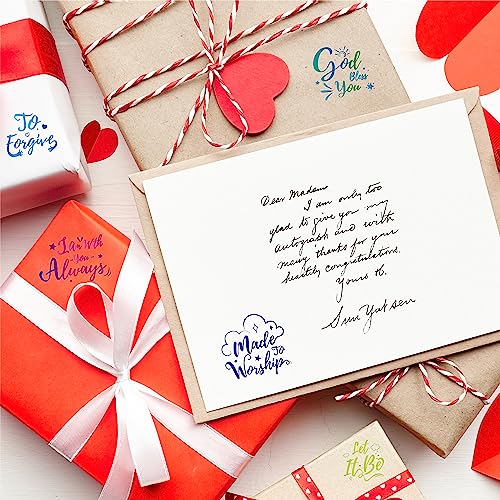 God
Bless
You
To
Forgive
I a With
You
Always
Dear Madam
I am only too
glad to give you my
autograph and with
many thanks for your
heartily congratulations.
Yours tr.
Sun Yat sen
Made
To
Worship
Let
It Be